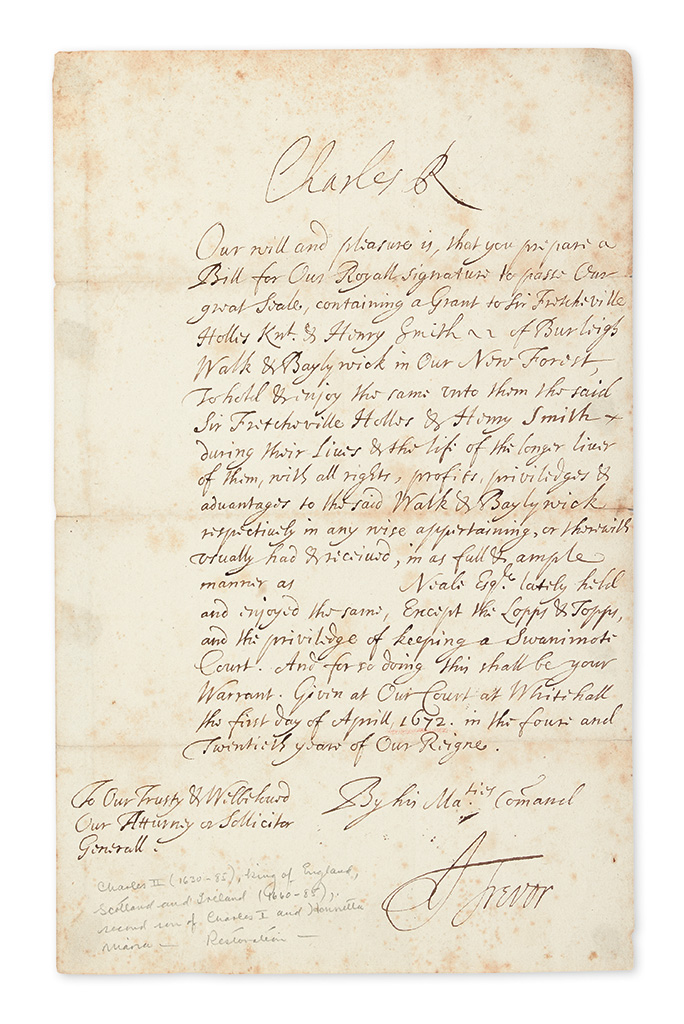 Charles R
Our will and pleasure is, that you prepare a
Bill for Our Royall signature to passe Our
great Seale, containing a Grant to Sir Fretcheville
Holles Knt. & Henry Smith ~ ~ of Burleigh
Walk & Baylywick in Our New Forest,
To hold & enjoy the same unto them the said
Sir Fretcheville Holles & Henry Smith
during their Lives & the life of the longer liver
of them, with all rights, profits, priviledges &
advantages to the said Walk & Baylywick
respectively in any wise appertaining, or therewith
usually had & received, in as full & ample
manner as Neale Esqr. lately held
and enjoyed the same, Except the Lopps & Topps,
and the priviledge of keeping a Swanimote
Court. And for so doing this shall be your
Warrant. Given at Our Court at Whitehall
the first day of Aprill, 1672. in the foure and
Twentieth yeare of Our Reigne.
To Our Trusty & Welbeloved
Our Atturney or Sollicitor
Generall.
By his Maties Comand
J Trevor
Charles II (1630-85), King of England,
Scotland and Ireland (1660-85),
second son of Charles I and Henrietta
Maria — Restoration —